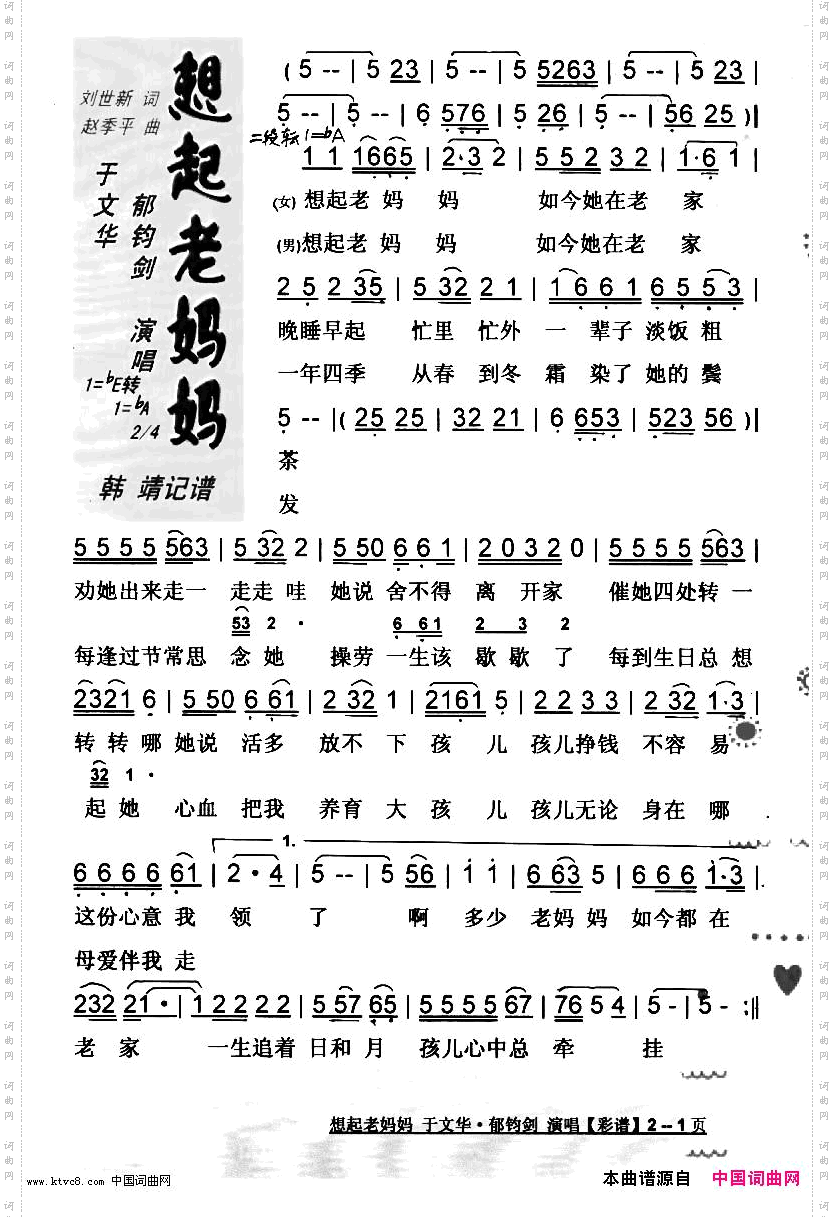 想起老妈妈
刘世新 词
赵季平 曲
于文华
郁钧剑 演唱
1=bE转
1=bA
2/4
韩 靖记谱
( 5 -- | 5 23 | 5 -- | 5 5263 | 5 -- | 5 23 |
5 -- | 5 -- | 6 576 | 5 26 | 5 -- | 56 25 )|
二段转1=bA
1 1 1665 | 2·3 2 | 5 5 2 3 2 | 1·6 1 |
(女) 想起老 妈 妈 如今她在老 家
(男)想起老 妈 妈 如今她在老 家
2 5 2 35 | 5 32 2 1 | 1 6 6 1 6 5 5 3 |
晚睡早起 忙里 忙外 一 辈子 淡饭 粗
一年四季 从春 到冬 霜 染了 她的 鬓
5 -- |( 25 25 | 32 21 | 6 653 | 523 56 )|
茶
发
5 5 5 5 563 | 5 32 2 | 5 50 6 6 1 | 2 0 3 2 0 | 5 5 5 5 563 |
劝她出来走一 走走 哇 她说 舍不得 离 开家 催她四处转 一
53 2 · 6 61 2 3 2
每逢过节常思 念 她 操劳 一生该 歇歇 了 每到生日总 想
2321 6 | 5 50 6 61 | 2 32 1 | 2161 5 | 2 23 3 | 2 32 1·3 |
转转 哪 她说 活多 放不 下 孩 儿 孩儿挣钱 不容 易
32 1 ·
起她 心血 把我 养育 大 孩 儿 孩儿无论 身在 哪
1.
6 6 6 6 61 | 2 · 4 | 5 -- | 5 56 | 1 1 | 6 63 5 | 6 6 6 1·3 |
这份心意 我 领 了 啊 多少 老妈 妈 如今都 在
母爱伴我 走
232 21 · | 1 2 2 2 2 | 5 57 65 | 5 5 5 5 67 | 76 5 4 | 5 - | 5 - :||
老 家 一生追着 日和 月 孩儿心中总 牵 挂
想起老妈妈 于文华·郁钧剑 演唱【彩谱】2 -- 1 页
www.ktvc8.com 中国词曲网
本曲谱源自 中国词曲网